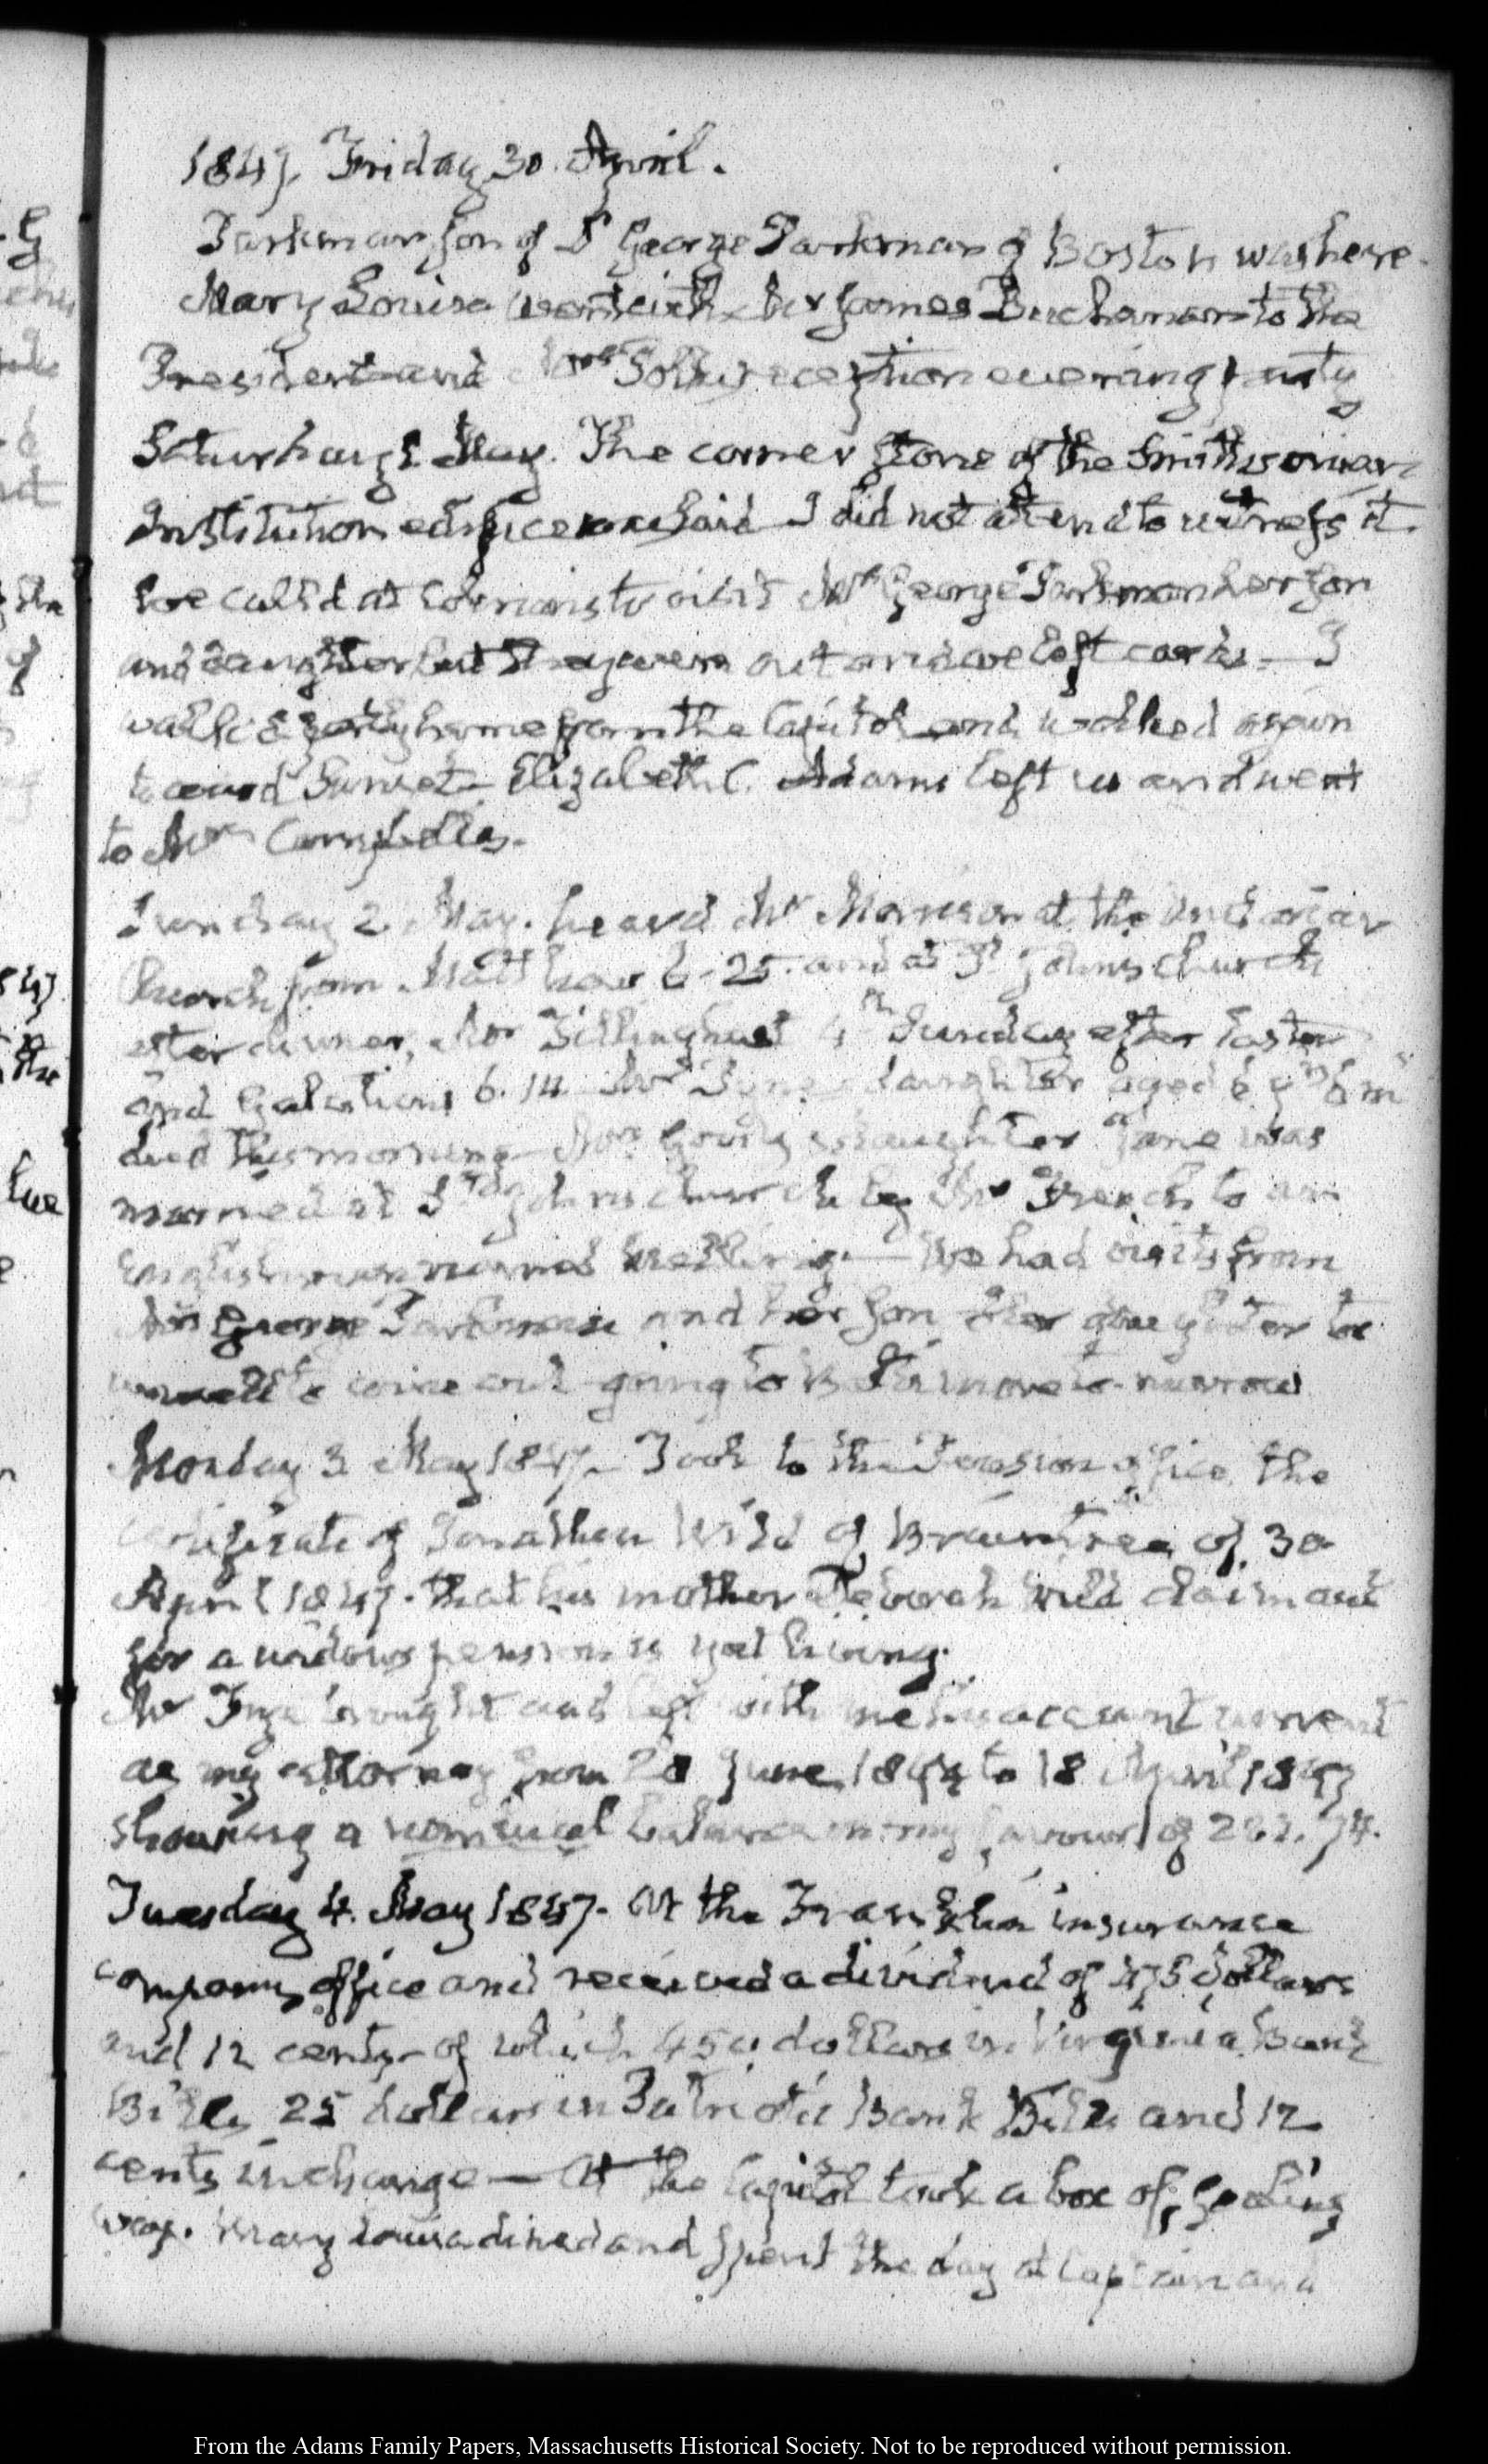 1847. Friday 30. April.
Parkman son of Dr George Parkman of Boston was here.
Mary Louisa went with Mr James Buchanan to the
President and Mrs Polk's reception evening party
Saturday 1. May. The corner stone of the Smithsonian
Institution edifice was laid I did not attend to witness it.
We called at Coleman's to visit Mrs George Parkman her son
and daughter but they were out and we left cards — I
walked partly home from the Capitol and walked again
toward Sunset — Elizabeth C. Adams left us and went
to Mrs Campbell's.
Sunday 2. May. heard Mr Morrison at the Unitarian
Church from Matthew 6. 25. and at St John's church
after dinner, Mr Tillinghast 4th Sunday after Easter
and Galatians 6. 14 Mr daughter aged 6 y 6 m
died this morning — Mrs daughter Jane was
married at St John's church by Mr French to an
Englishman named — We had visits from
Mrs George Parkman and her son her daughter too
unwell to come out going to Baltimore to-morrow
Monday 3. May 1847. Took to the Pension office the
certificate of Jonathan Wild of Braintree of 30
April 1847. that his mother Deborah Wild claimant
for a widows pension is yet living.
Mr Frye brought and left with me his account current
as my attorney from 20 June 1844 to 18 April 1847
showing a nominal balance in my favour of 282. 74.
Tuesday 4. May 1847. At the Franklin insurance
company office and received a dividend of 475 dollars
and 12 cents of which 450 dollars in Virginia Bank
Bills, 25 dollars in Patriotic Bank Bills and 12
cents in change — At the Capitol took a box of sealing
wax. Mary Louisa dined and spent the day at Captain and